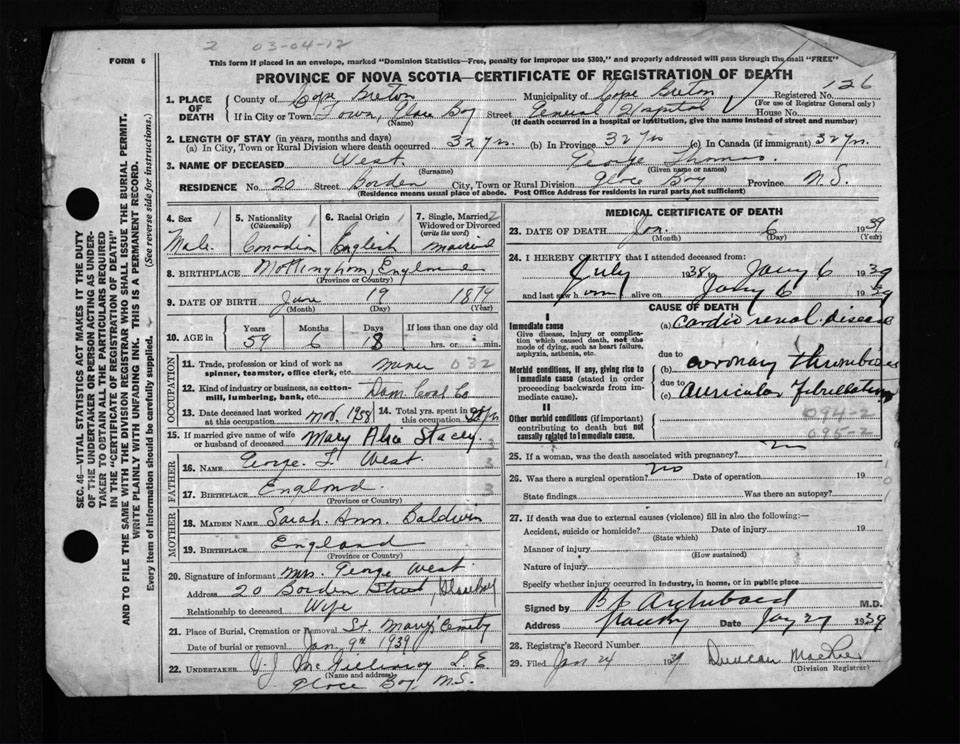 2 03-04-12
FORM 6
This form if placed in an envelope, marked "Dominion Statistics—Free, penalty for improper use $300," and properly addressed will pass through the mail "FREE"
PROVINCE OF NOVA SCOTIA—CERTIFICATE OF REGISTRATION OF DEATH
126
1. PLACE OF DEATH County of Cape Breton Municipality of Cape Breton Registered No.
(For use of Registrar General only)
If in City or Town Town, Glace Bay Street General Hospital House No.
(Name) (If death occurred in a hospital or institution, give the name instead of street and number)
2. LENGTH OF STAY (in years, months and days)
(a) In City, Town or Rural Division where death occurred 32 yrs. (b) In Province 32 yrs (c) In Canada (if immigrant) 32 yrs.
3. NAME OF DECEASED West George Thomas.
(Surname) (Given name or names)
RESIDENCE No. 20 Street Borden City, Town or Rural Division Glace Bay Province N.S.
(Residence means usual place of abode. Post Office Address for residents in rural parts not sufficient)
4. Sex 1 5. Nationality (Citizenship) 1 6. Racial Origin 1 7. Single, Married, Widowed or Divorced (write the word) 2
Male Canadian English married
8. BIRTHPLACE Nottingham, England
(Province or Country)
9. DATE OF BIRTH June 19 1879
(Month) (Day) (Year)
10. AGE in Years Months Days If less than one day old
59 6 18 hrs. or min.
OCCUPATION
11. Trade, profession or kind of work as spinner, teamster, office clerk, etc. miner 032
12. Kind of industry or business, as cotton-mill, lumbering, bank, etc. Dom. Coal Co
13. Date deceased last worked at this occupation Nov. 1938 14. Total yrs. spent in this occupation
15. If married give name of wife or husband of deceased Mary Stacey. 3
FATHER
16. NAME George T. West 3
17. BIRTHPLACE England. 3
(Province or Country)
MOTHER
18. MAIDEN NAME Sarah Ann Baldwin
19. BIRTHPLACE England
(Province or Country)
20. Signature of informant Mrs. George West
Address 20 Borden Street, Glace Bay
Relationship to deceased Wife
21. Place of Burial, Cremation or Removal St. Marys Cemetery
Date of burial or removal Jan. 9th 1939
22. UNDERTAKER V J McGillivray L.E.
(Name and address)
Glace Bay N.S.
MEDICAL CERTIFICATE OF DEATH
23. DATE OF DEATH Jan. 6 1939
(Month) (Day) (Year)
24. I HEREBY CERTIFY that I attended deceased from:
July 1938 to Jany 6 1939
and last saw him alive on Jany 6 1939
CAUSE OF DEATH
I
Immediate cause
Give disease, injury or complication which caused death, not the mode of dying, such as heart failure, asphyxia, asthenia, etc.
(a) Cardio renal disease
due to
Morbid conditions, if any, giving rise to immediate cause (stated in order of proceeding backwards from immediate cause).
(b) coronary thrombosis
due to
(c) auricular fibrillation
II
Other morbid conditions (if important) contributing to death but not causally related to immediate cause.
094-2
095-2
25. If a woman, was the death associated with pregnancy? no
26. Was there a surgical operation? no Date of operation 19
State findings Was there an autopsy?
101
27. If death was due to external causes (violence) fill in also the following:—
Accident, suicide or homicide? Date of injury 19
(State which)
Manner of injury
(How sustained)
Nature of injury
Specify whether injury occurred in industry, in home, or in public place
Signed by Archibald M.D.
Address Date Jany 27 1939
28. Registrar's Record Number
29. Filed Jan 24 1939 Duncan
(Division Registrar)
SEC. 46—VITAL STATISTICS ACT MAKES IT THE DUTY
OF THE UNDERTAKER OR PERSON ACTING AS UNDER-
TAKER TO OBTAIN ALL THE PARTICULARS REQUIRED
IN THE "CERTIFICATE OF REGISTRATION OF DEATH"
AND TO FILE THE SAME WITH THE DIVISION REGISTRAR WHO SHALL ISSUE THE BURIAL PERMIT.
WRITE PLAINLY WITH UNFADING INK. THIS IS A PERMANENT RECORD.
Every item of information should be carefully supplied. (See reverse side for instructions.)